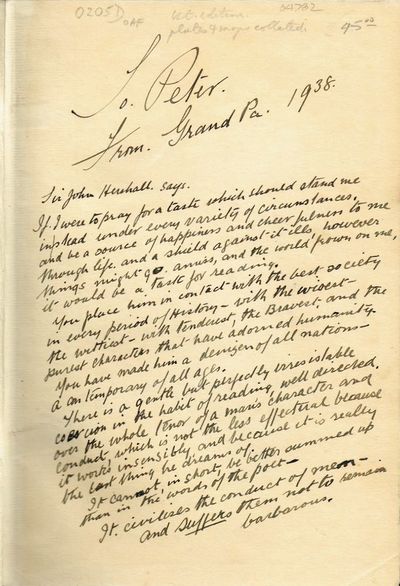 0205D OAF
1st edition. 04732
plates & maps collated 45.00
To. Peter.
From. Grand Pa. 1938.
Sir John Hershall. Says.
If I were to pray for a taste which should stand me
instead under every variety of circumstances,
and be a source of happiness and cheerfulness to me
through life, and a shield against it ills, however
things might go amiss, and the world frown on me,
it would be a taste for reading.
You place him in contact with the best society
in every period of History – with the wisest –
the wittiest – with tenderest, the Bravest, and the
purest characters that have adorned humanity.
You have made him a denizen of all nations –
a contemporary of all ages.
There is a gentle but perfectly irresistable
coercion in the habit of reading, well directed,
over the whole tenor of a mans character and
conduct, which is not the less effectual because
it works insensibly, and because it is really
the last thing he dreams of.
It cannot, in short, be better summed up
than in the words of the poet –
It. civilizes the conduct of men –
and suffers them not to remain
barbarous.